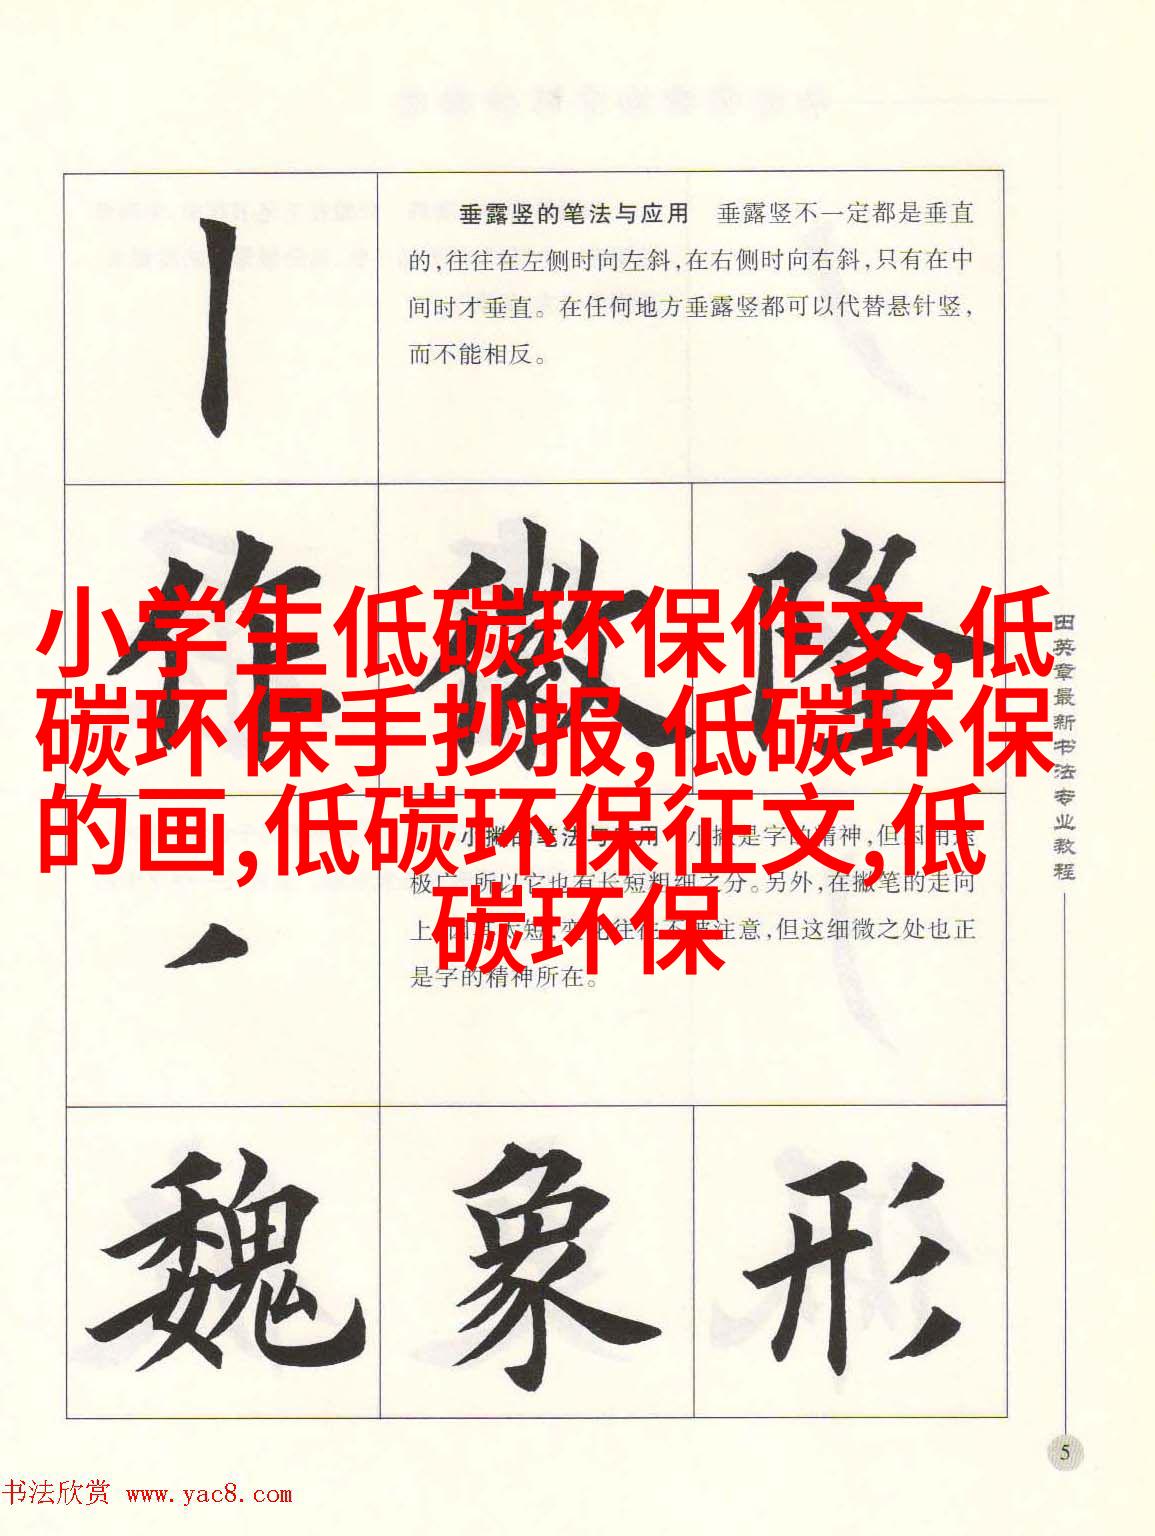 垂露竖的笔法与应用 垂露竖不一定都是垂直
的,往往在左侧时向左斜,在右侧时向右斜,只有在中
间时才垂直。在任何地方垂露竖都可以代替悬针竖,
而不能相反。
作 徽 隆
小学生低碳环保作文,低
碳环保手抄报,低碳环保
的画,低碳环保征文,低
碳环保
小撇的笔法与应用 小撇是字的精神,但因用途
极广,所以它也有长短粗细之分。另外,在撇笔的走向
上,因其太短,变化往往不被注意,但这细微之处也正
是字的精神所在。
魏 象 形
田英章最新书法专业教程
5
书法欣赏 www.yac8.com